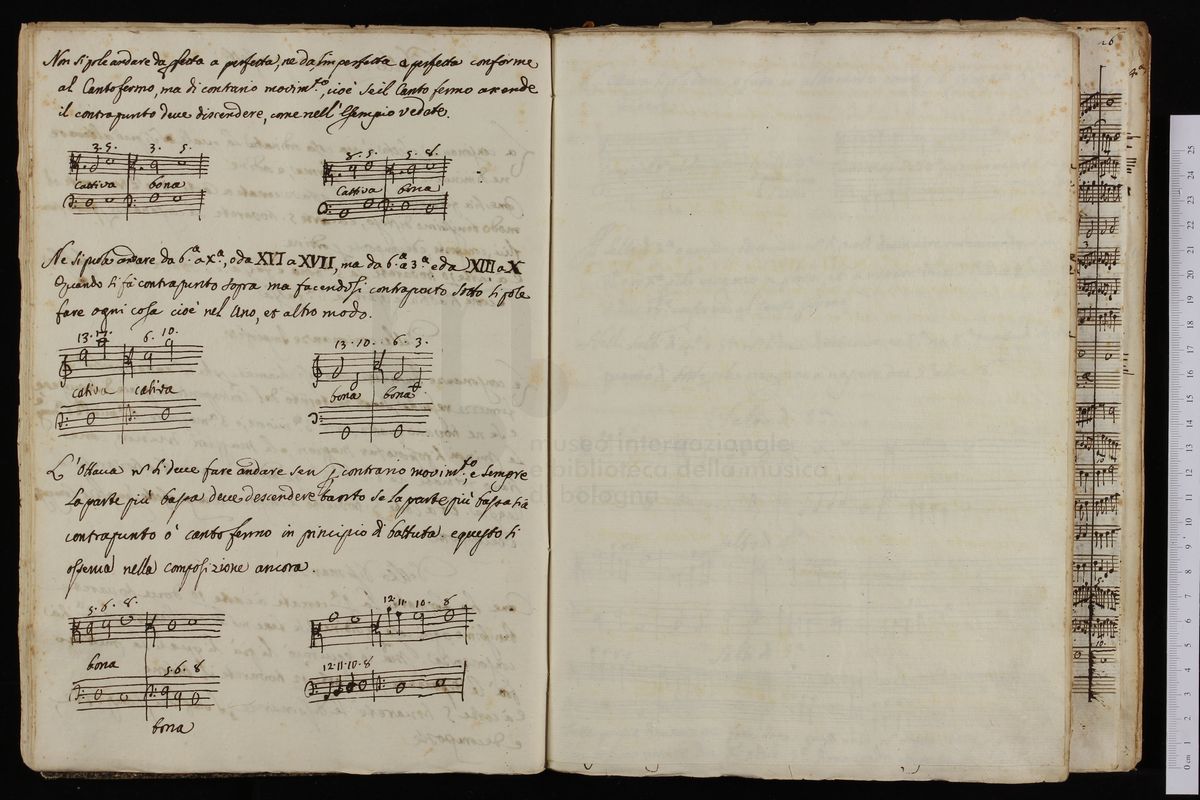 Non si pole andare da pfetta a perfetta, ne da imperfetta a perfetta conforme
al Canto fermo, ma di contrario movim.to, cioè se il Canto fermo ascende
il contrapunto deve discendere, come nell' Esempio vedete.
3. 5. 3. 5.
8. 5. 5. 8.
Cattiva bona
Cattiva bona
Ne si puta andare da 6.a a X.a, o da XVI a XVII, ma da 6.a a 3.a e da XIII a X
Quando si fà contrapunto sopra ma facendosi contraposto sotto si pole
fare ogni cosa cioè nel Uno, et altro modo.
13. 17. 6. 10.
13. 10. 6. 3.
cativa cativa
bona bona
L'Ottava n si deve fare andare se n p contrario movim.to, e sempre
la parte più bassa deve descendere tanto se la parte più bassa sia
contrapunto ò canto fermo in principio di battuta. e questo si
osserva nella composizione ancora.
5. 6. 8.
12. 11. 10. 8
bona
5. 6. 8
12. 11. 10. 8
bona
museo internazionale
e biblioteca della musica
di bologna
26
0 cm 1 2 3 4 5 6 7 8 9 10 11 12 13 14 15 16 17 18 19 20 21 22 23 24 25